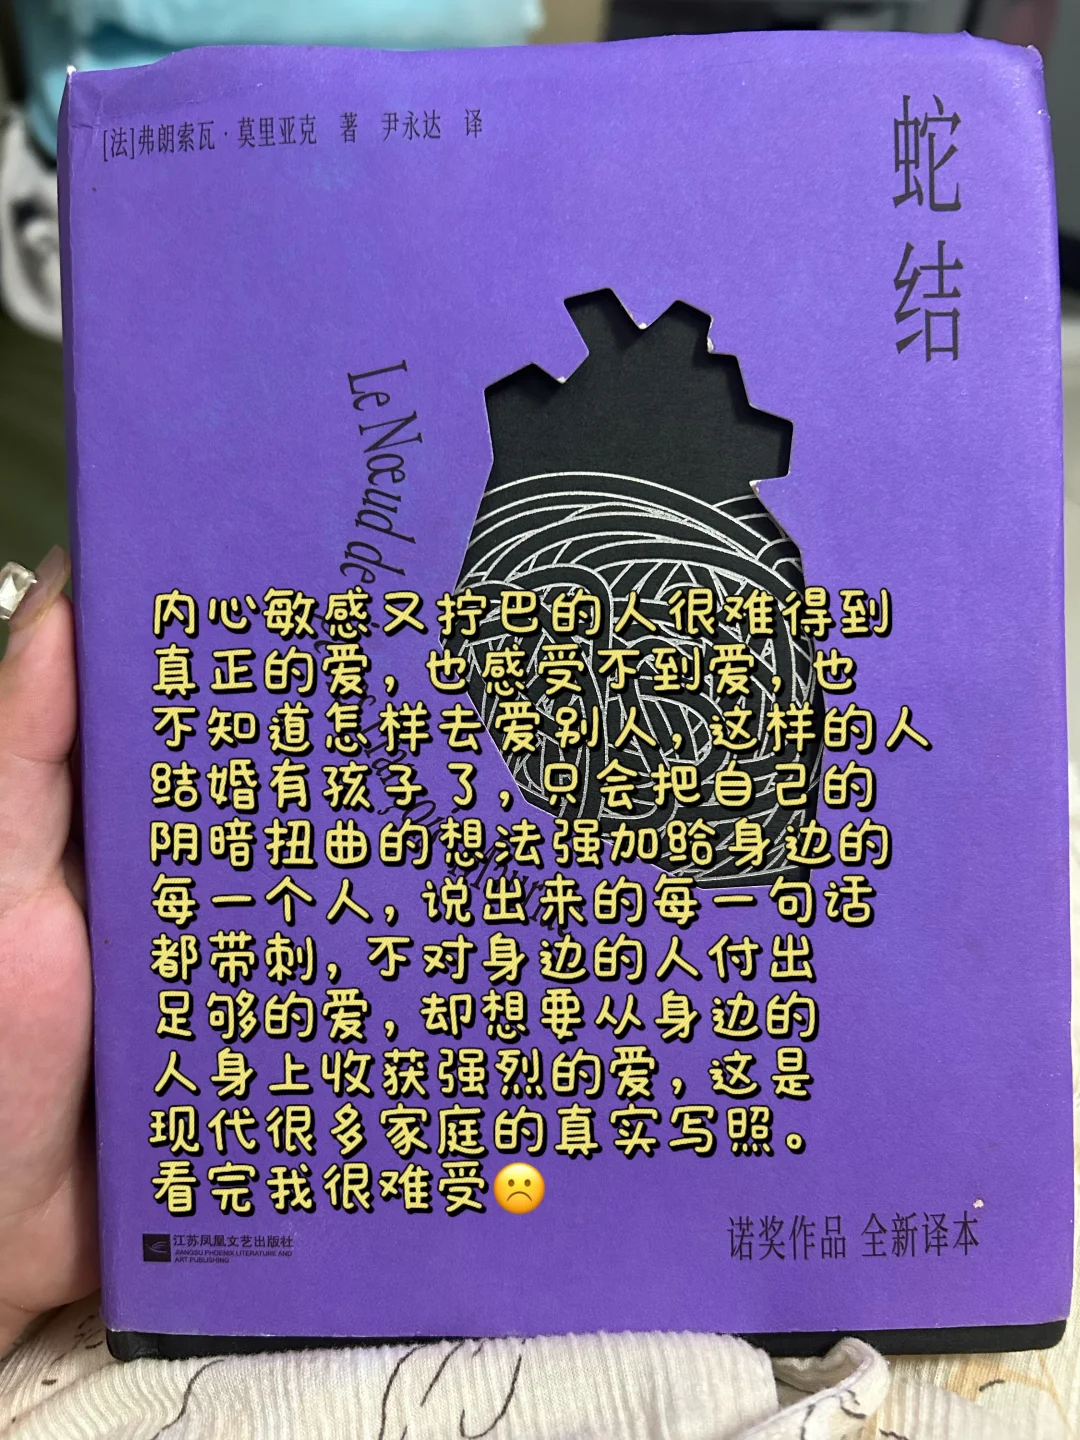 [法]弗朗索瓦·莫里亚克 著 尹永达 译
蛇结
Le Nœud de
内心敏感又拧巴的人很难得到
真正的爱，也感受不到爱，也
不知道怎样去爱别人，这样的人
结婚有孩子了，只会把自己的
阴暗扭曲的想法强加给身边的
每一个人，说出来的每一句话
都带刺，不对身边的人付出
足够的爱，却想要从身边的
人身上收获强烈的爱，这是
现代很多家庭的真实写照。
看完我很难受☹️
江苏凤凰文艺出版社
JIANGSU PHOENIX LITERATURE AND
ART PUBLISHING
诺奖作品 全新译本